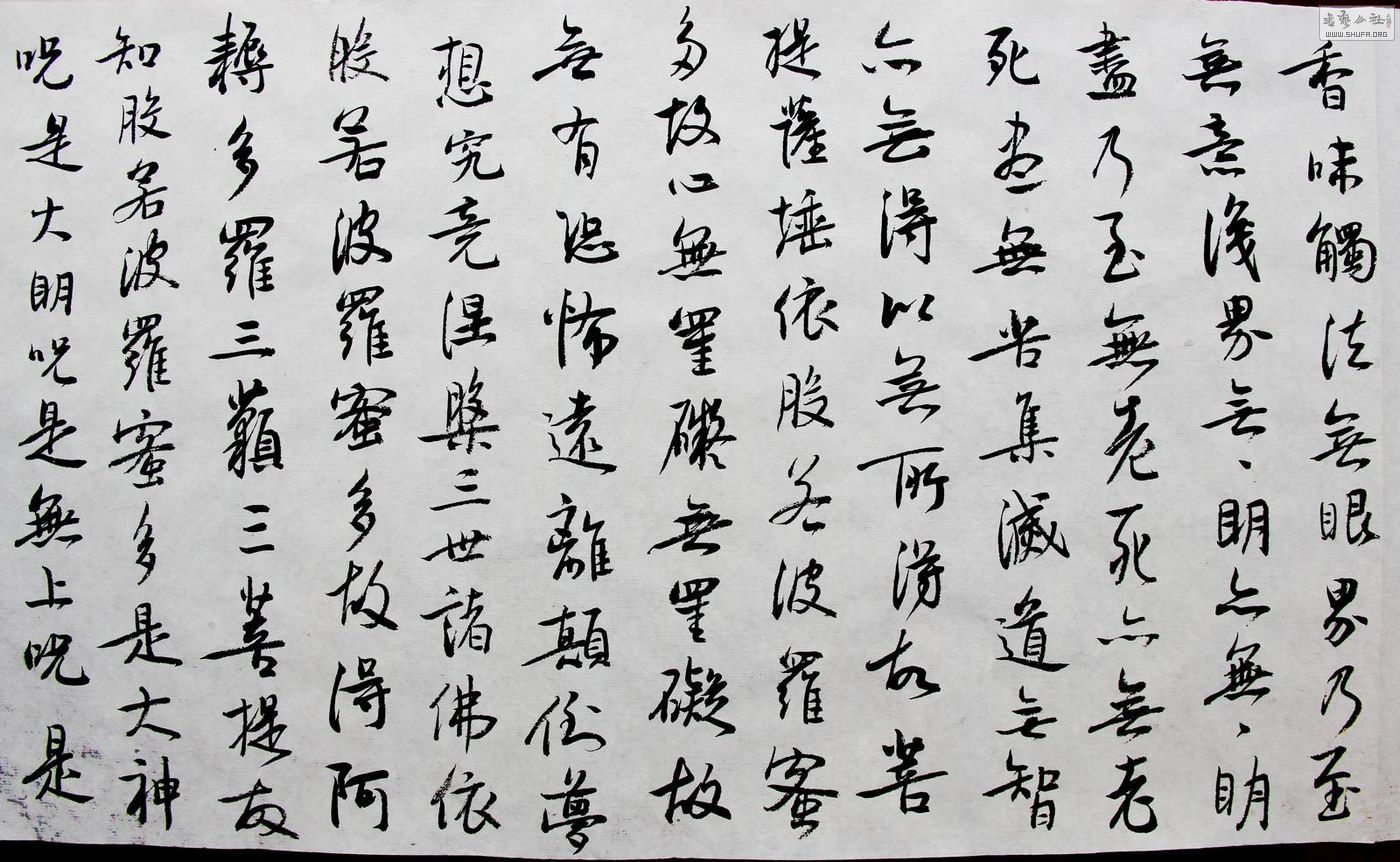 香味觸法無眼界乃至
無意識界無、明亦無、明
盡乃至無老死亦無老
死盡無苦集滅道無智
亦無得以無所得故菩
提薩埵依般若波羅蜜
多故心無罣礙無罣礙故
無有恐怖遠離顛倒夢
想究竟涅槃三世諸佛依
般若波羅蜜多故得阿
耨多羅三藐三菩提故
知般若波羅蜜多是大神
呪是大明呪是無上呪是
書藝公社
WWW.SHUFA.ORG